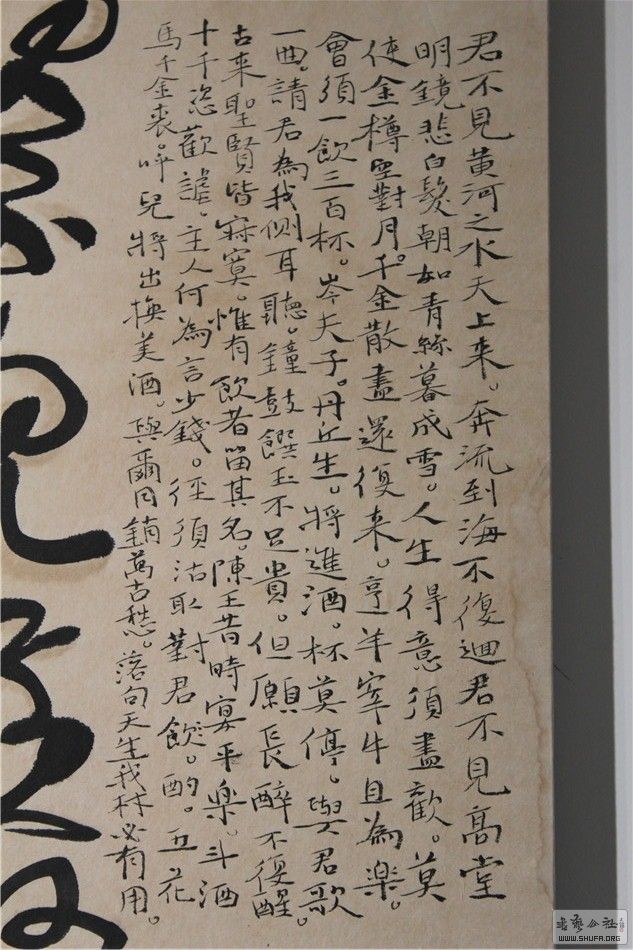 君不見黃河之水天上来。奔流到海不復迴君不見高堂
明鏡悲白髮朝如青絲暮成雪。人生得意須盡歡。莫
使金樽空對月。千金散盡還復来。亨羊宰牛且為樂。
會須一飲三百杯。岑夫子。丹丘生。將進酒。杯莫停。與君歌
一曲。請君為我側耳聽。鐘鼓饌玉不足貴。但願長醉不復醒。
古来聖賢皆寂寞。惟有飲者留其名。陳王昔時宴平樂。斗酒
十千恣歡謔。主人何為言少錢。徑須沽取對君飲。酌。五花
馬千金裘。呼兒將出換美酒。與爾同銷萬古愁。落句天生我材必有用。
書藝公社
WWW.SHUFA.ORG